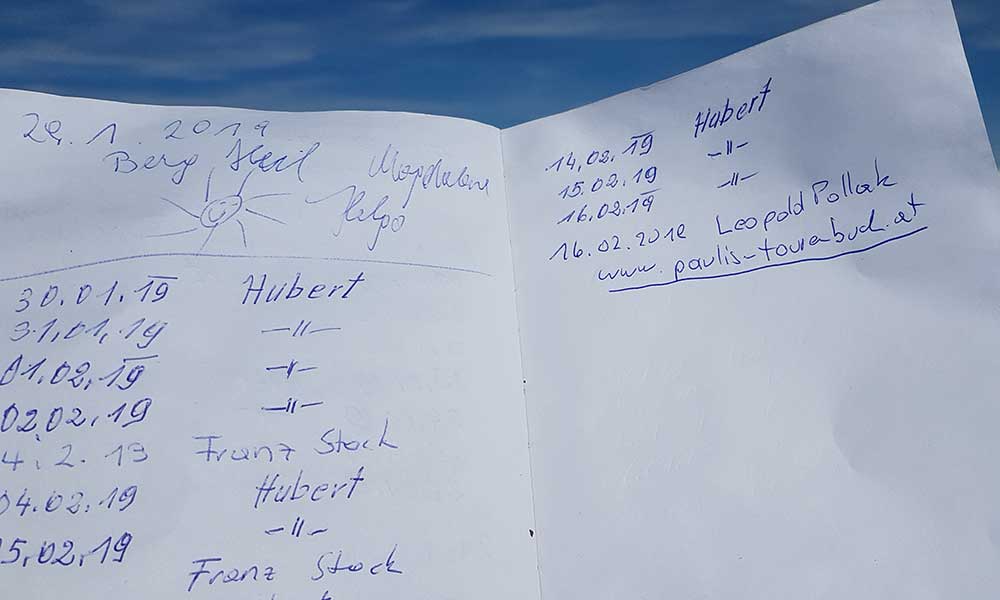 29.1.2019
Berg Heil Magdalena
30.01.19 Hubert
31.01.19 -"-
01.02.19 -"-
02.02.19 -"-
4.2.19 Franz Stock
04.02.19 Hubert
05.02.19 -"-
Franz Stock
14.02.19 Hubert
15.02.19 -"-
16.02.19 -"-
16.02.2019 Leopold Pollak
www.paulis-tourenbuch.at